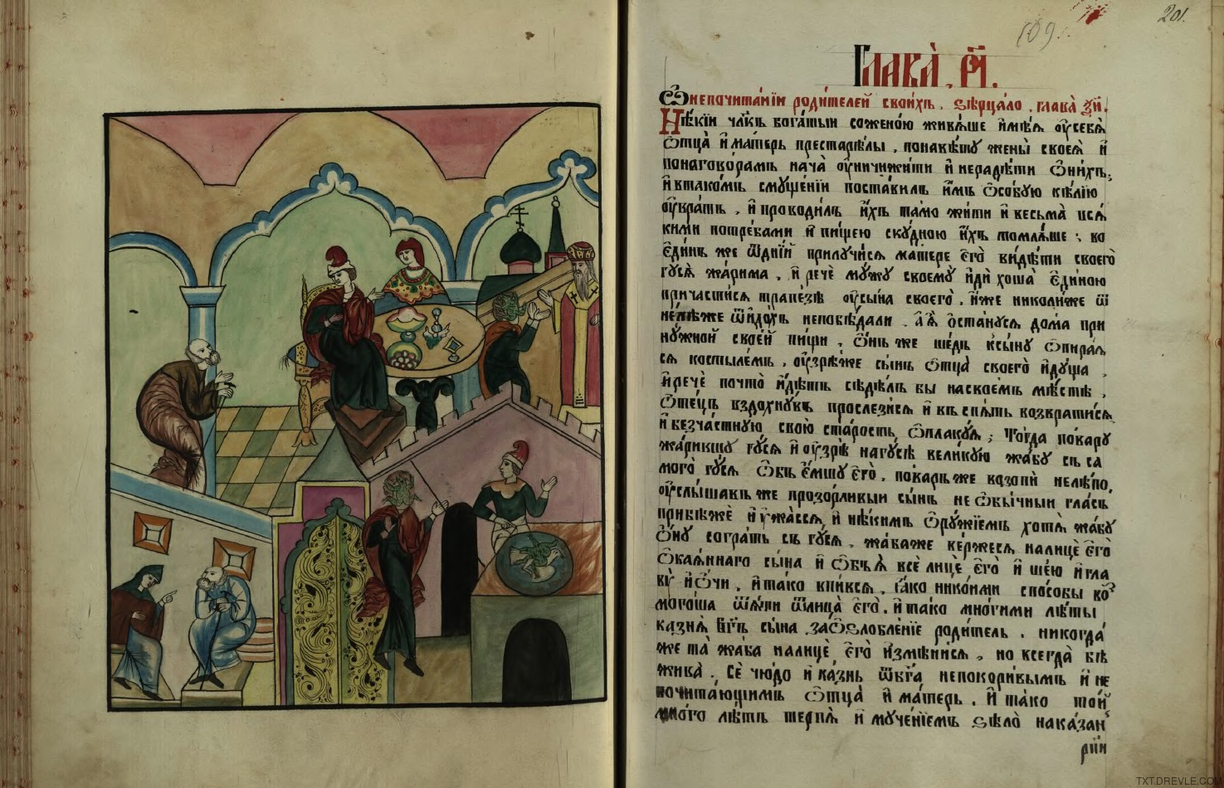 109.
201.
Глава̀. РѲ҃І.
Ѡ непочита́нїи роди́телей свои́хъ. Ѕе́рцало. глава̀
Нѣ́кїи чл҃къ бога́тыи соженою живѧ́ше имѣ́ѧ ᲂу҆себѧ̀
ѻтца̀ и҆ ма́терь престарѣ́лы. понавѣ́тꙋ жены̀ своеѧ̀ и҆
понагово́рамъ нача̀ ᲂу҆ничижа́ти и҆ нерадѣ́ти ѡ҆ни́хъ,
и҆втако́мъ смꙋще́нїи поста́вилъ и҆̀мъ ѻ҆со́бꙋю кѣ́лїю
ᲂу҆вра́тъ, и҆ прово́дилъ и҆́хъ та́мо жи́ти и҆ весьма̀ всѧ́
кими потре́бами и҆ пи́щею скꙋ́дною и҆́хъ томлѧ́ше: во
є҆ди́нъ же ѿдні́й прилꙋчи́сѧ ма́тере є҆гѡ̀ ви́дѣти своего̀
гꙋ́сѧ жа́рима, и҆ речѐ мꙋ́жꙋ своемꙋ̀ и҆дѝ хоша̀ є҆ди́ною
причасти́сѧ трапе́зѣ ᲂу҆сы́на своего̀. и҆́же николи́же ѿ
не́лѣже ѿидо́хъ непобѣ́дали. а҆ ѧ҆̀ ѻ҆ста́нꙋсѧ до́ма при
нꙋ́жной свое́й пи́щи. ѻ҆́нъ же ше́дъ ксы́нꙋ ѡ҆пира́ѧ
сѧ косты́лемъ, ᲂу҆зрѣ́же сы́нъ ѻ҆тца̀ своего̀ и҆дꙋ́ща.
и҆речѐ почто̀ и҆́детъ сѣдѣ́лъ бы насвое́мъ мѣ́стѣ.
ѻ҆те́цъ вздохнꙋ́въ прослези́сѧ и҆ въспѧ́ть возврати́сѧ
и҆ безча́стнꙋю свою̀ ста́рость ѡ҆пла́кꙋѧ; Тогда̀ по́варꙋ
жа́рившꙋ гꙋ́сѧ и҆ ᲂу҆зрѣ̀ нагꙋ́сѣ вели́кꙋю жа́бꙋ съ са
мо́го гꙋ́сѧ ѻ҆бъе́мшꙋ є҆го̀. по́варъ же возопѝ нелѣ́по,
ᲂу҆слы́шавъ же прозо́рливыи сы́нъ не ѻ҆бы́чныи гла́съ
прибѣжѐ и҆ ᲂу҆жа́ссѧ и҆ нѣ́кимъ ѻ҆рꙋ́жїемъ хотѧ̀ жа́бꙋ
ѻ҆́нꙋ согна́ть съ гꙋ́сѧ. жа́ба же ве́ржесѧ налицѐ є҆го̀
ѻ҆каѧ́ннаго сы́на и҆ ѻ҆б̾ѧ̀ всѐ лицѐ є҆го̀ и҆ ше́ю и҆ гла
вꙋ̀ и҆ ѻ҆́чи. и҆ та́ко впи́всѧ, ꙗ҆́ко нико́ими спо́собы воз
мого́ша ѿѧ́ти ѿлица̀ є҆го̀. и҆ та́ко мно́гими лѣ́ты
казнѧ̀ бг҃ъ сы́на за ѻ҆ѕлобле́нїе роди́тель. никогда̀
же та̀ жа́ба налицѐ є҆го̀ и҆змѣни́сѧ. но всегда̀ бѣ̀
жива̀. сѐ чю́до и҆ ка́знь ѿбг҃а непокори́вымъ и҆ не
почита́ющимъ ѻ҆тца̀ и҆ ма́терь. И҆ та́ко то́й
мно́го лѣ́тъ терпѧ̀ и҆ мꙋче́нїемъ ѕѣлѡ̀ нака́зан
рїи
TXT.DREVLE.COM